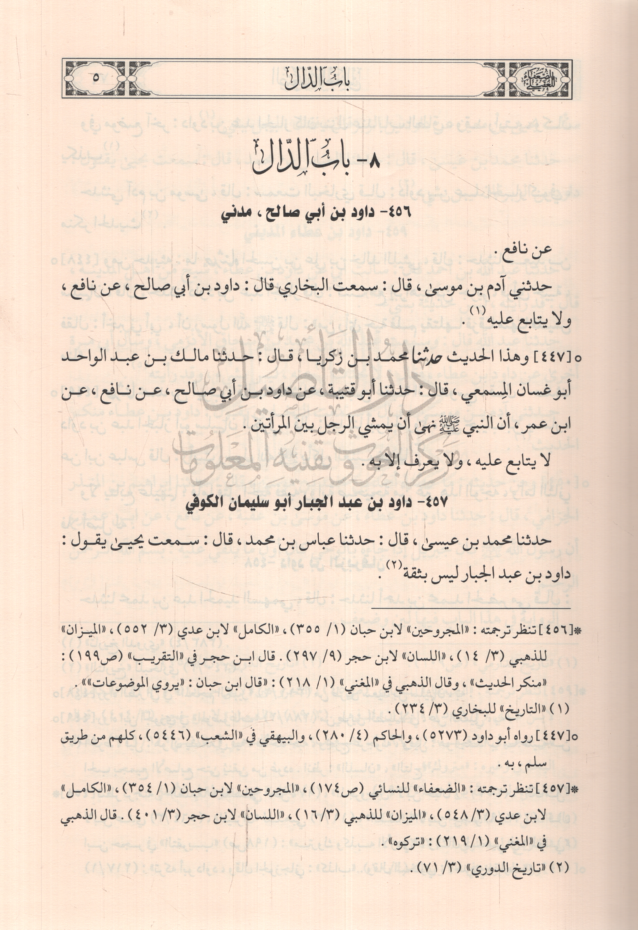 باب الدال
٥
٨- باب الدال
٤٥٦- داود بن أبي صالح ، مدني
عن نافع .
حدثني آدم بن موسى ، قال : سمعت البخاري قال : داود بن أبي صالح ، عن نافع ،
ولا يتابع عليه(١).
○[٤٤٧] وهذا الحديث حدثنا محمد بن زكريا ، قال : حدثنا مالك بن عبد الواحد
أبو غسان المِسمعي ، قال : حدثنا أبو قتيبة ، عن داود بن أبي صالح ، عن نافع ، عن
ابن عمر ، أن النبي ﷺ نهى أن يمشي الرجل بين المرأتين .
لا يتابع عليه ، ولا يعرف إلا به .
دار التأصيل
مركز البحوث وتقنية المعلومات
٤٥٧- داود بن عبد الجبار أبو سليمان الكوفي
حدثنا محمد بن عيسى ، قال : حدثنا عباس بن محمد ، قال : سمعت يحيى يقول :
داود بن عبد الجبار ليس بثقة(٢) .
*[٤٥٦] تنظر ترجمته : «المجروحين» لابن حبان (١/ ٣٥٥)، «الكامل» لابن عدي (٣/ ٥٥٢)، «الميزان»
للذهبي (٣/ ١٤)، «اللسان» لابن حجر (٩/ ٢٩٧). قال ابن حجر في «التقريب» (ص١٩٩) :
«منكر الحديث» ، وقال الذهبي في «المغني» (١/ ٢١٨) : «قال ابن حبان : "يروي الموضوعات"» .
(١) «التاريخ» للبخاري (٣/ ٢٣٤) .
○[٤٤٧] رواه أبو داود (٥٢٧٣)، والحاكم (٤/ ٢٨٠)، والبيهقي في «الشعب» (٥٤٤٦)، كلهم من طريق
سلم ، به .
*[٤٥٧] تنظر ترجمته : «الضعفاء» للنسائي (ص١٧٤)، «المجروحين» لابن حبان (١/ ٣٥٤)، «الكامل»
لابن عدي (٣/ ٥٤٨)، «الميزان» للذهبي (٣/ ١٦)، «اللسان» لابن حجر (٣/ ٤٠١). قال الذهبي
في «المغني» (١/ ٢١٩) : «تركوه» .
(٢) «تاريخ الدوري» (٣/ ٧١) .